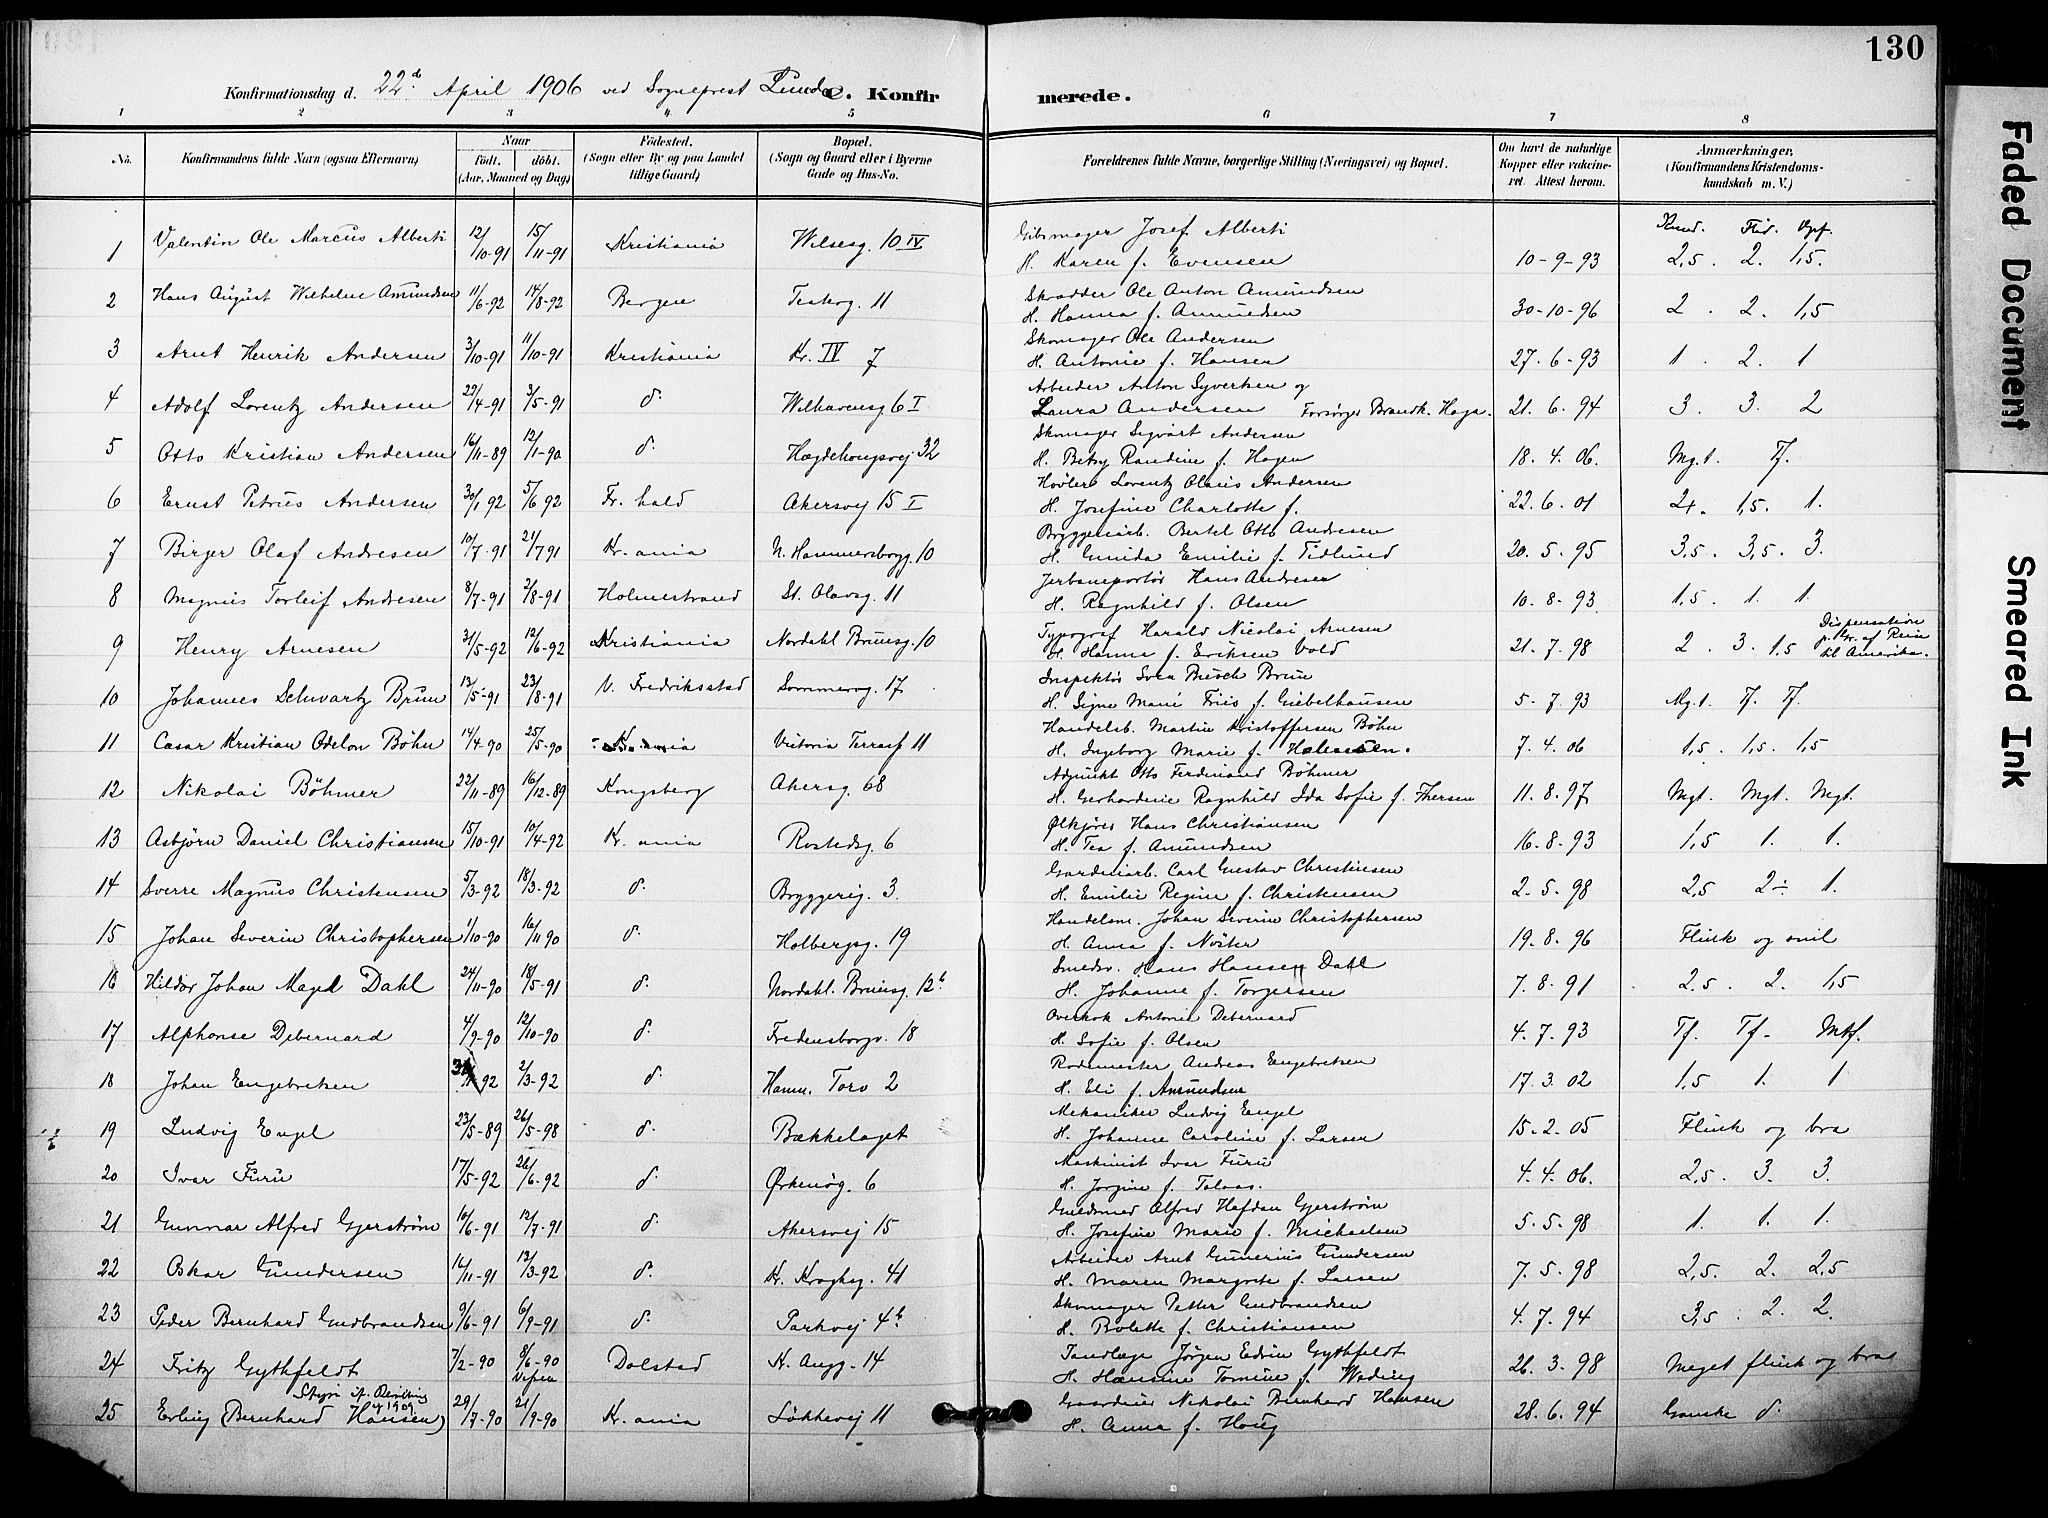 130
Konfirmationsdag d. 22d. April 1906 ved Sogneprest Lunde C. Konfirmerede.
1 2 3 4 5 6 7 8
No.
Konfirmandens fulde Navn (ogsaa Efternavn)
Naar
født. døbt.
(Aar, Maaned og Dag)
Fødested.
(Sogn eller By og paa Landet
tillige Gaard)
Bopæl.
(Sogn og Gaard eller i Byerne
Gade og Hus-No.
Forældrenes fulde Navne, borgerlige Stilling (Næringsvei) og Bopæl.
Om havt de naturlige
Kopper eller vakcine-
ret. Attest herom.
Anmærkninger,
(Konfirmandens Kristendoms-
kundskab m. V.)
Kund. Flid. Opf.
1 Valentin Ole Marcus Alberti 12/10-91 15/11-91 Kristiania Wilsesg. 10 IV Gibsmager Josef Alberti
H. Karen f. Evensen 10-9-93 2,5. 2. 1,5.
2 Hans August Wilhelm Amundsen 11/6-92 14/8-92 Bergen 11 Skrædder Ole Anton Amundsen
H. Hanna f. Amundsen 30-10-96 2. 2. 1,5
3 Arnt Henrik Andersen 3/10-91 11/10-91 Kristiania Kr. IV 7 Skomager Ole Andersen
H. Antonie f. Hansen 27-6-93 1. 2. 1
4 Adolf Lorentz Andersen 22/4-91 3/5-91 d. Welhavensg 6 I Arbeider Anton Syvertsen og
Laura Andersen Forsørger Brandk. Haga. 21.6.94 3. 3. 2
5 Otto Kristian Andersen 16/11-89 12/1-90 d. Hægdehougsvej 32 Skomager Sigvart Andersen
H. Betsy Randine f. Hagen 18.4.06. Mg.t. Tf.
6 Ernst Petrus Andersen 30/1 92 5/6 92 Fr. hald Akersvej 15 I Høvler Lorentz Olaus Andersen
H. Josefine Charlotte f. 22.6.01 2+. 1,5. 1.
7 Birger Olaf Andresen 10/7-91 21/7 91 Kr. ania N. Hammersborgg. 10 Bryggeriarb. Bertel Otto Andresen
H. Emilie f. Tidlund 20.5.95 3,5. 3,5. 3.
8 Magnus Torleif Andresen 8/7-91 2/8-91 Holmestrand St. Olavsg. 11 Jerbaneportør Hans Andresen
H. Ragnhild f. Olsen 10.8.93 1,5. 1. 1.
9 Henry Arnesen 31/5-92 12/6-92 Kristiania Nordahl Brunsg. 10 Typograf Harald Nicolai Arnesen
H. Hanna f. Eriksen Vold 21.7.98 2. 3. 1,5 Dispensation
p. Gr. af Reise
til Amerika.
10 Johannes Schwartz Bruun 13/5-91 23/8-91 V. Fredriksstad Sommerog. 17 Inspektør Sven Busch Brun
H. Signe Marie Friis f. Giebelhausen 5-7.93 Mg.t. Tf. Tf.
11 Casar Kristian Odelon Böhn 14/4-90 25/5-90 Kr. ania Victoria Terasse 11 Handelsb. Martin Kristoffersen Böhn
H. Ingeborg Marie f. 7.4.06 1,5. 1,5. 1,5
12 Nikolai Böhmer 22/11-89 16/12-89 Kongsberg Akersg. 68 Adjunkt Otto Ferdinand Böhmer
H. Gerhardine Ragnhild Ida Sofie f. Thersen 11.8.97 Mgt. Mgt. Mgt.
13 Asbjörn Daniel Christiansen 15/10-91 10/4-92 Kr. ania Rostedsg. 6 Ølkjører Hans Christiansen
H. Tea f. Amundsen 16.8.93 1,5 1. 1.
14 Sverre Magnus Christensen 5/3-92 18/3-92 d. Bryggerig. 3. Gardinarb. Carl Gustav Christensen
H. Emilie Regine f. Christensen 2.5.98 2,5 2-. 1.
15 Johan Severin Christophersen 1/10-90 16/11 90 d. Holbergsg. 19 Handelsm. Johan Severin Christophersen
H. Anna f. Nöster 19.8.96 Flink og snil
16 Hildor Johan Magel Dahl 24/11-90 18/5-91 d. Nordahl. Brunsg. 12b Smedsv. Hans Hansen Dahl
H. Johanne f. Torgersen 7.8.91 2,5. 2. 1,5
17 Alphonse Debernard 4/9-90 12/10-90 d. Fredensborgv. 18 Overkok Antonie Debernard
H. Sofie f. Olsen 4.7.93 Tf. Tf-
18 Johan Engebretsen 31/1-92 2/3-92 d. Hamm. Torv 2 Rodemester Andreas Engebretsen
H. Eli f. Amundsen 17.3.02 1,5 1. 1
19 Ludvig Engel 23/5-89 26/5-98 d. Bækkelaget Mekaniker Ludvig Engel
H. Johanne Caroline f. Larsen 15.2.05 Flink og bra
20 Ivar Furu 17/5-92 26/6-92 d. Ørkenög. 6 Maskinist Ivar Furu
H. Jorgine f. Talaas. 4.4.06. 2,5. 3. 3.
21 Gunnar Alfred Gjerström 10/6-91 12/7-91 d. Akersvej 15 Guldsmed Alfred Hafdan Gjerström
H. Josefine Marie f. Michaelsen 5.5.98 1. 1. 1.
22 Oskar Gundersen 16/11-91 13/3-92 d. Kr. Kroghsg. 41 Arbeider Arnt Gunerius Gundersen
H. Maren Margrete f. Larsen 7.5.98 2,5. 2. 2,5
23 Peder Bernhard Gudbrandsen 9/6-91 6/9-91 d. Parkvej 4b Skomager Petter Gudbrandsen
H. Bolette f. Christiansen 4.7.94 3,5. 2. 2.
24 Fritz Gythfeldt 7/2-90 8/6-90
Vefsen Dolstad K. Augg. 14 Tandlæge Jørgen Edvin Gythfeldt
H. Hansine Tomine f. Weding 26.3.98 Meget flink og bra
25 Erling (Bernhard Hansen) 29/7-90 21/9-90 Kr. ania Løkkevej 11 Gaardeier Nikolai Bernhard Hansen
H. Anna f. Houg 28.6.94 Ganske d.
Faded Document
Smeared Ink